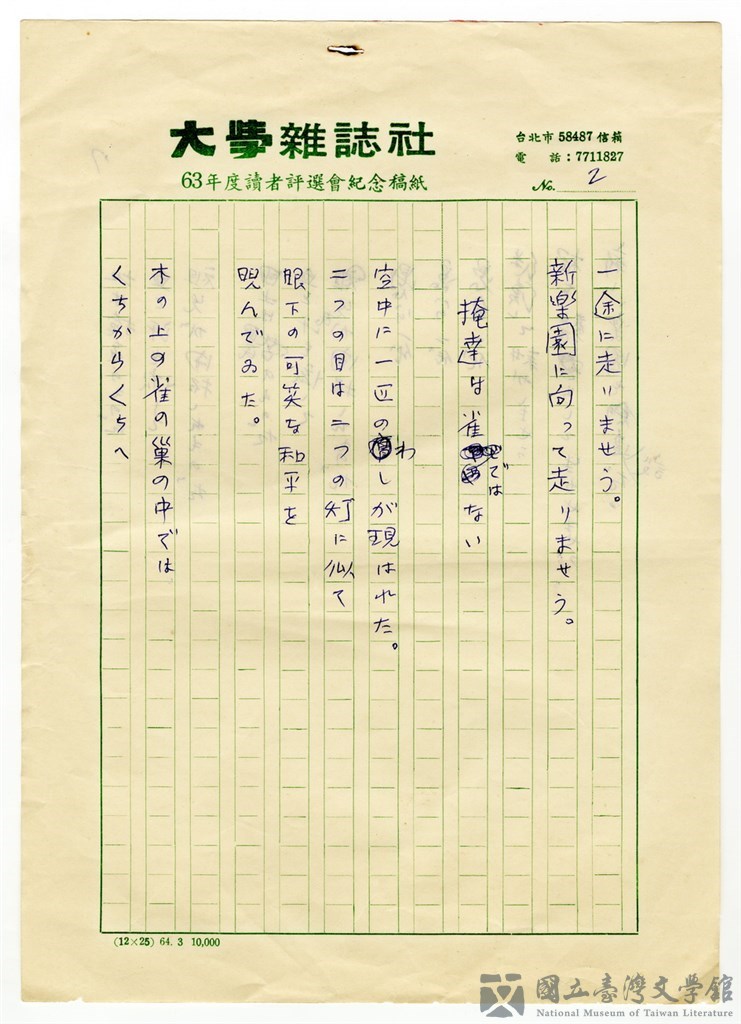 大學雜誌社
63年度讀者評選會紀念稿紙
台北市 58487 信箱
電 話：7711827
No. 2
一途に走りませう。
新楽園に向って走りませう。
掩達は雀ではない
空中に一匹のわしが現はれた。
二つの目は二つの灯に似て
眼下の可笑な和平を
睨んでゐた。
木の上の雀の巣の中では
くちからくちへ
(12×25) 64. 3 10,000
國立臺灣文學館
National Museum of Taiwan Literature